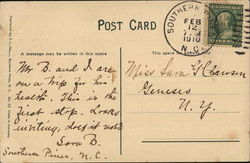 POST CARD
A message may be written in this space
SOUTHERN
FEB
12
1910
N.C.
Mr B. and I are
on a trip for his
health. This is the
first stop. Looks
inviting, does it not
Sara B.
Southern Pines, N.C.
Miss Sara G Clawson
Geneseo
N.Y.